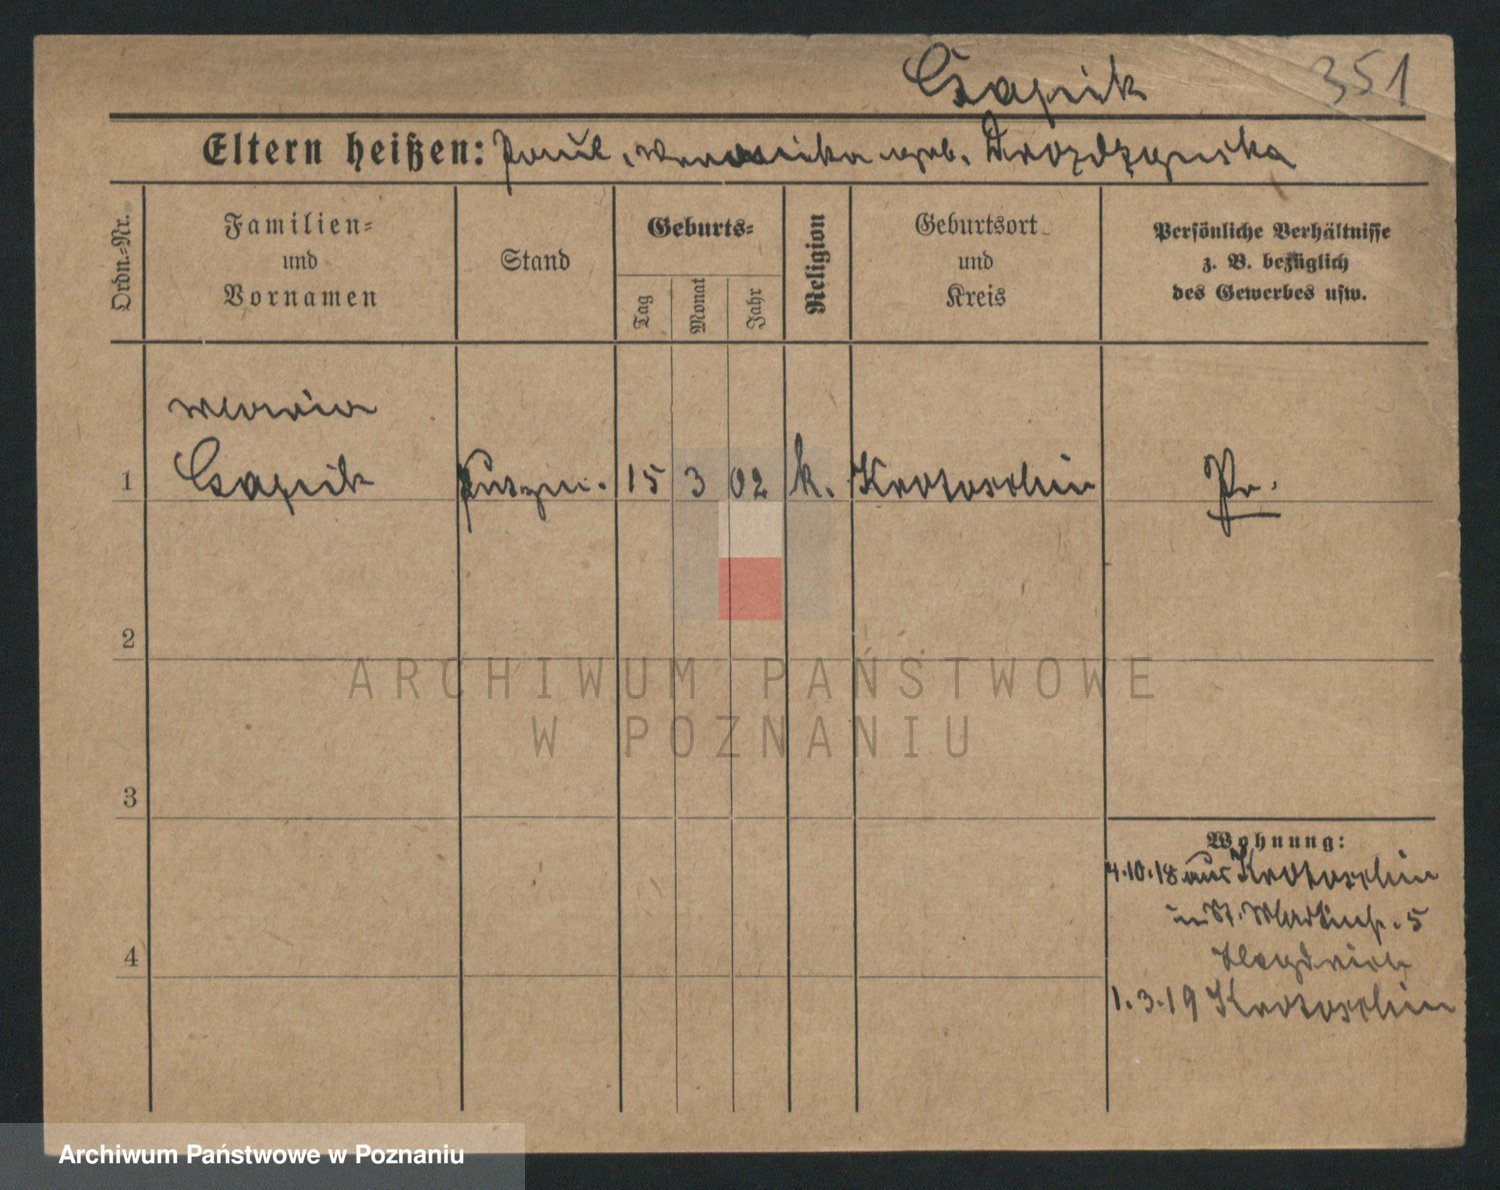 Czapik 351
Eltern heißen: Paul, Veronika geb. Drozdzynska
Ordn.-Nr.
Familien-
und
Vornamen
Stand
Geburts-
Tag
Monat
Jahr
Religion
Geburtsort
und
Kreis
Persönliche Verhältnisse
z. B. bezüglich
des Gewerbes usw.
Maria
1 Czapik 15 3 02 k. Krotoschin Pr.
2
3
4
Wohnung:
4.10.18 aus Krotoschin
in St. Martinstr. 5
1.3.19 Krotoschin
ARCHIWUM PAŃSTWOWE
W POZNANIU
Archiwum Państwowe w Poznaniu